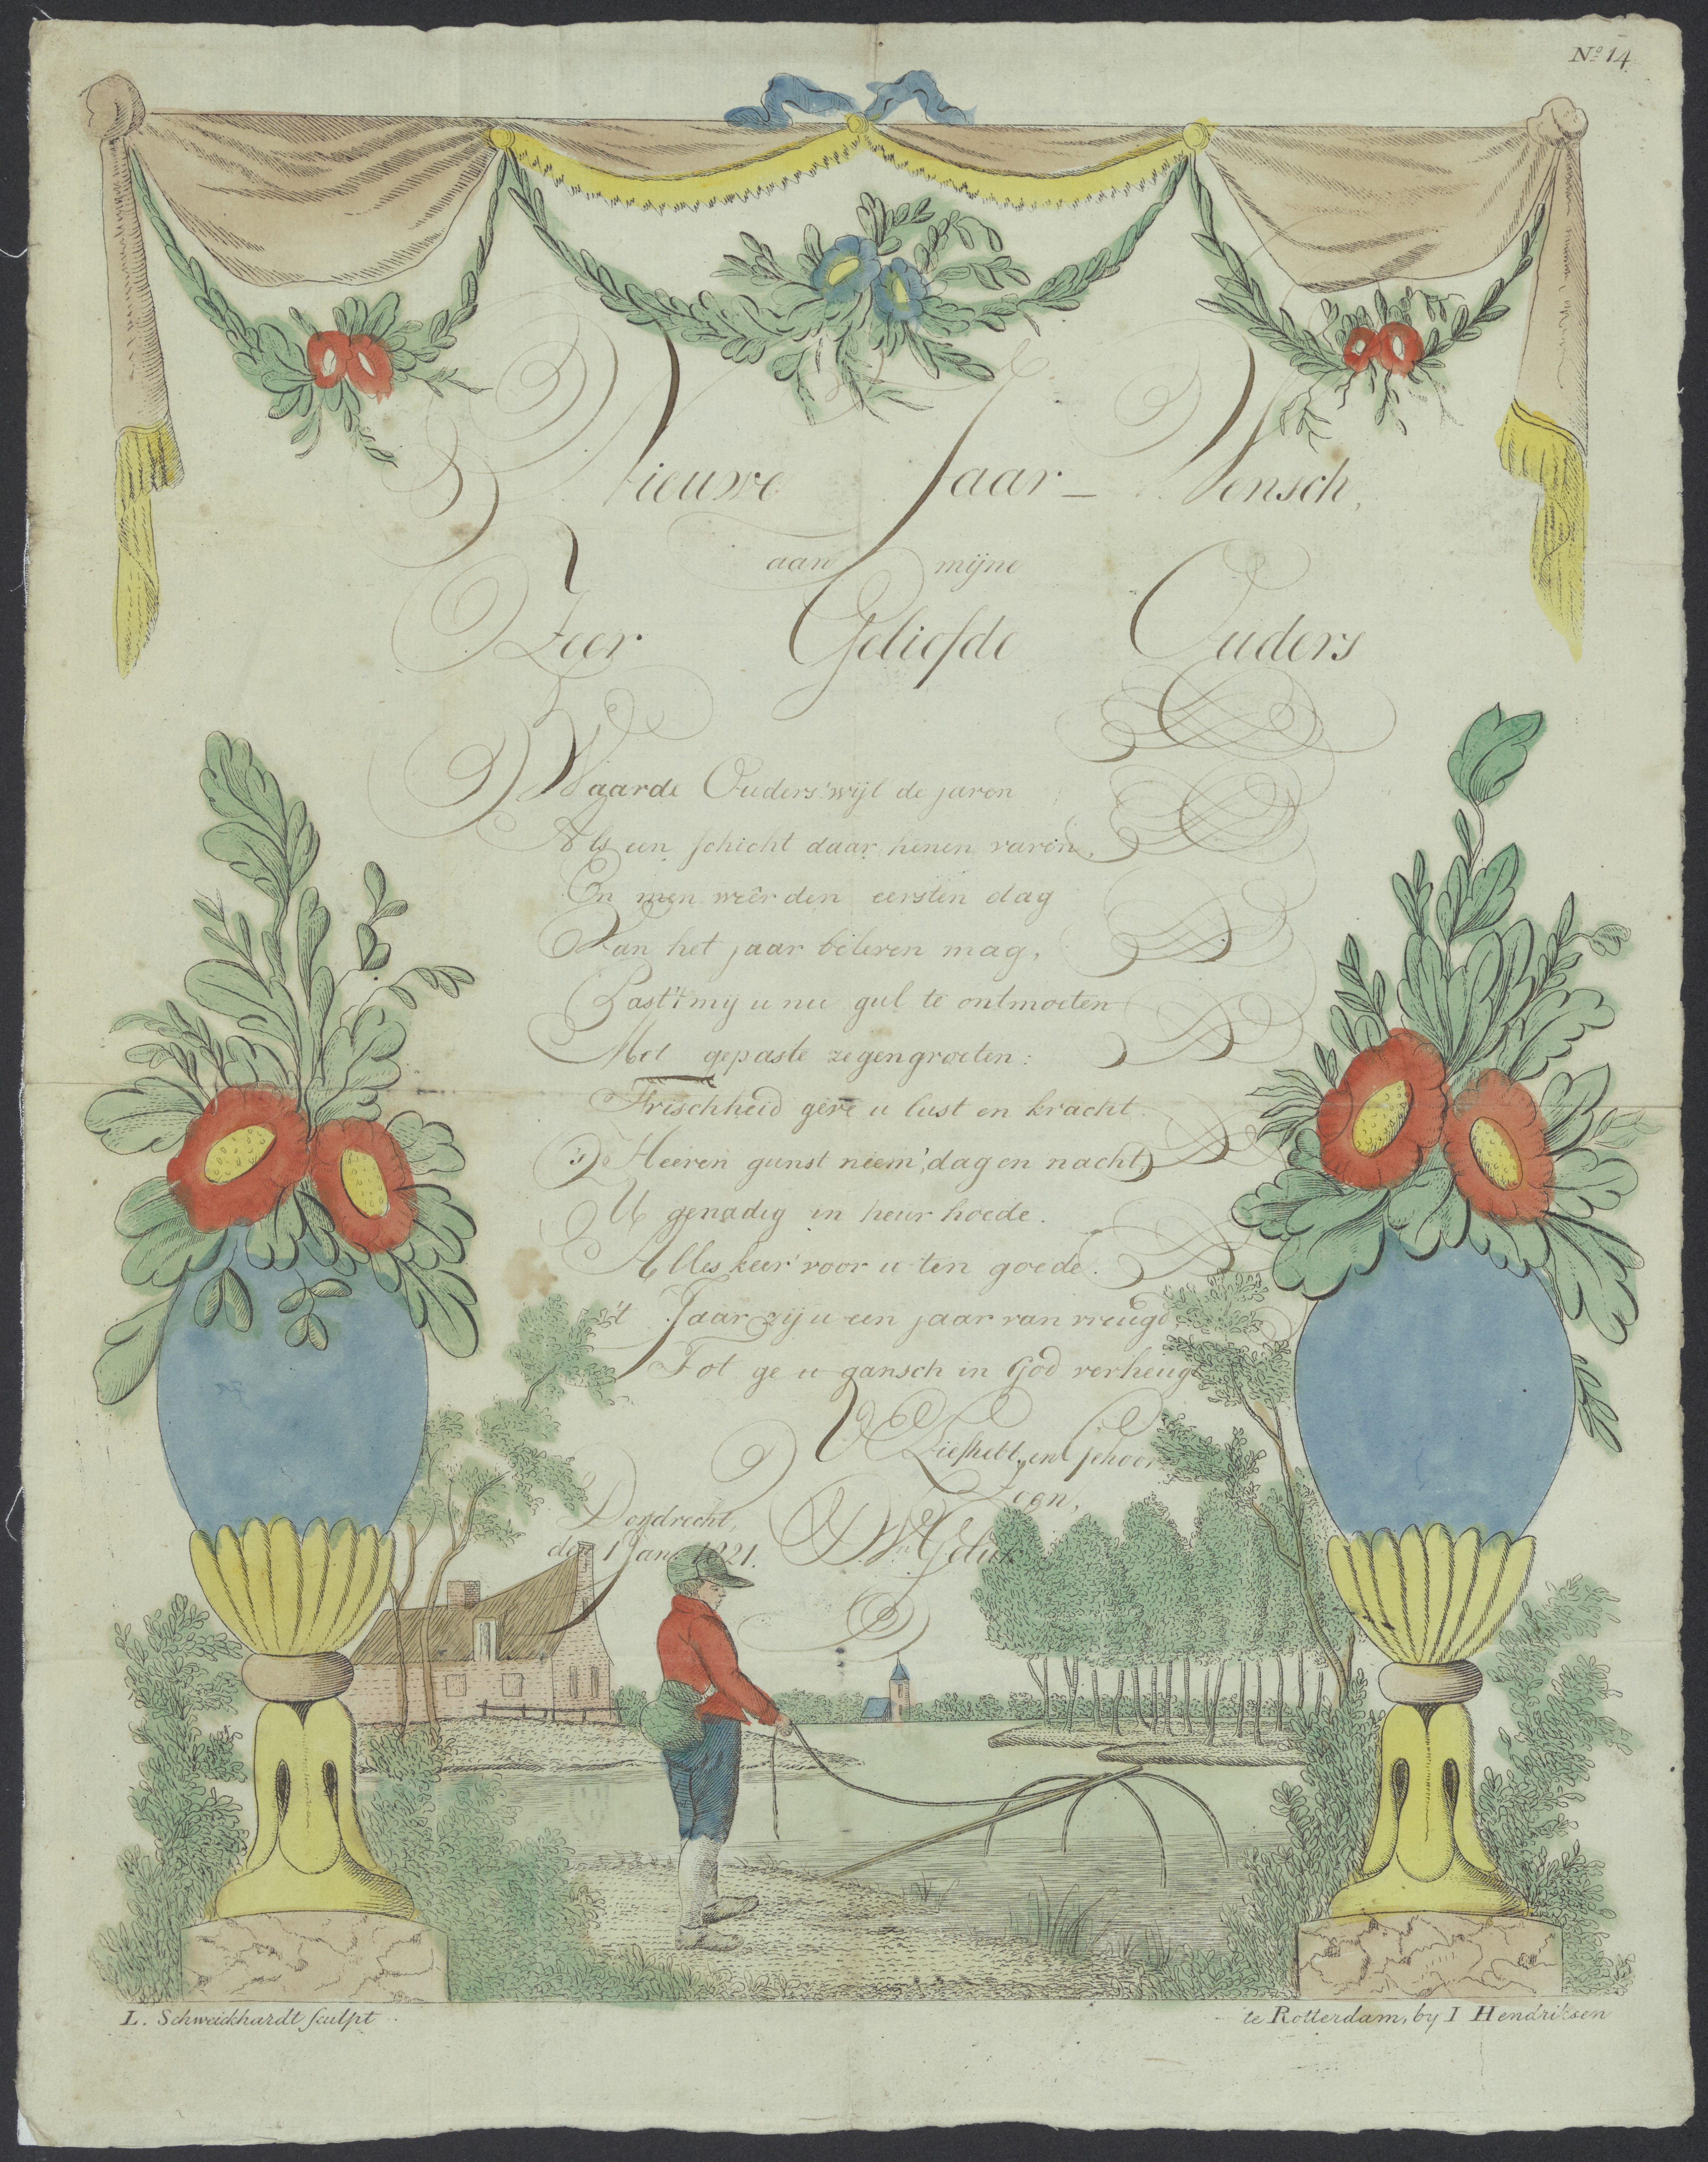 No 14
Nieuwe Jaar- Wensch,
aan mijne
Zeer Geliefde Ouders
Waarde Ouders! wijl de jaren
Als een schicht daar henen varen,
En men weêr den eersten dag
Van het jaar beleven mag,
Past 't mij u nu gul te ontmoeten
Met gepaste zegengroeten:
Frischheid geve u lust en kracht
's Heeren gunst neem', dag en nacht,
U genadig in heur hoede.
Alles keer' voor u ten goede.
't Jaar zij u een jaar van vreugd,
Tot ge u gansch in God verheugt
U Liefhebb. en Gehoor
Zoon,
Dordrecht,
den 1 Jan. 1821.
L. Schweickhardt sculpt
te Rotterdam, by I Hendriksen